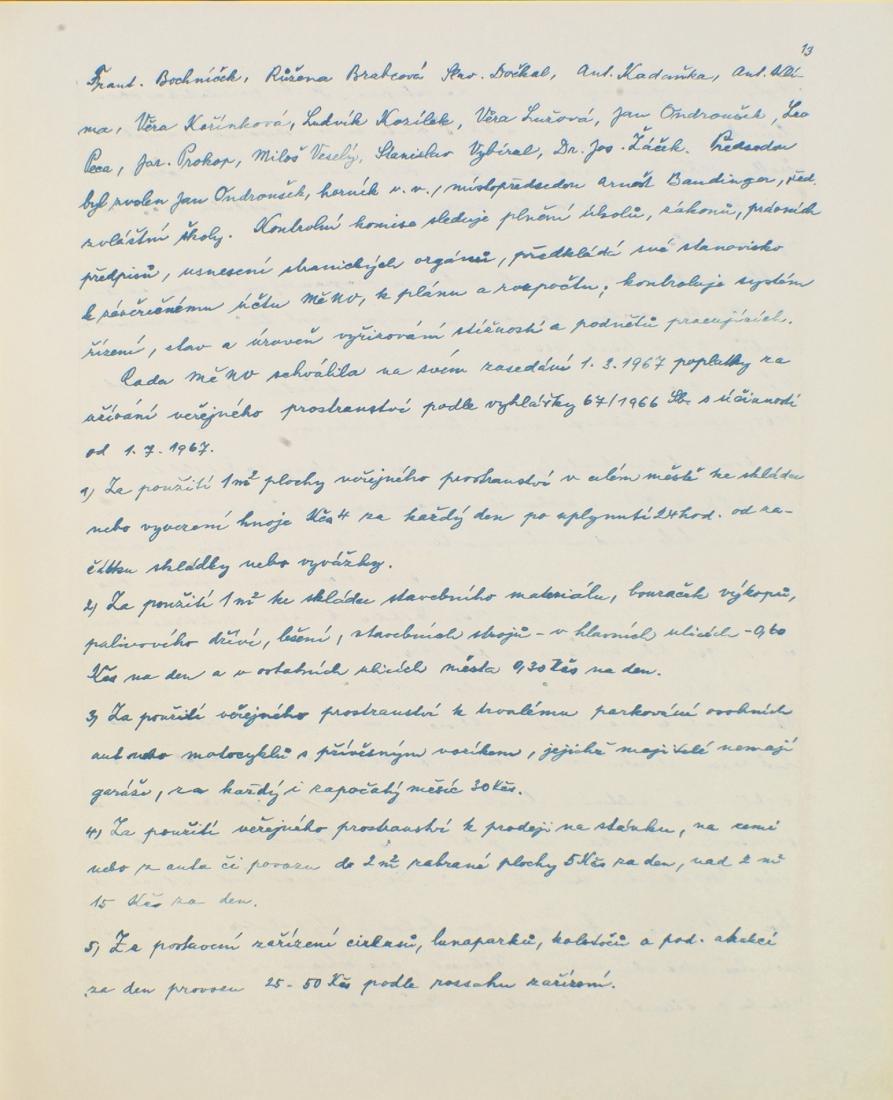 13
Frant. Bochníček, Růžena Brabcová Stan. Dočkal, Ant. Kadaňka, Ant. Kli-
ma, Věra Kořínková, Ludvík Kozílek, Věra Lužová, Jan Ondroušek, Leo
Peca, Jar. Prokop, Miloš Veselý, Stanislav Vybíral, Dr. Jos. Žáček. Předsedou
byl zvolen Jan Ondroušek, horník v. v., místopředsedou Arnošt Bandinger, řed.
zvláštní školy. Kontrolní komise sleduje plnění úkolů, zákonů, právních
předpisů, usnesení stranických orgánů, předkládá své stanovisko
k závěrečnému účtu MěNV, k plánu a rozpočtu; kontroluje systém
řízení, stav a úroveň vyřizování stížností a podnětů pracujících.
Rada MěNV schválila na svém zasedání 1. 3. 1967 poplatky za
užívání veřejného prostranství podle vyhlášky 67/1966 Sb. s účinností
od 1. 7. 1967.
1) Za použití 1 m² plochy veřejného prostranství v celém městě ke skládce
nebo vyvezení hnoje Kčs 4 za každý den po uplynutí 24 hod. od za-
čátku skládky nebo vyvážky.
2) Za použití 1 m² ke skládce stavebního materiálu, bouraček výkopů,
palivového dříví, lešení, stavebních strojů - v hlavních ulicích - 0,60
Kčs na den a v ostatních ulicích města 0,30 Kčs na den.
3) Za použití veřejného prostranství k trvalému parkování osobních
aut nebo motocyklů s přívěsným vozíkem, jejichž majitelé nemají
garáže, za každý i započatý měsíc 30 Kčs.
4) Za použití veřejného prostranství k prodeji na stánku, na zemi
nebo z auta či povozu do 2 m² zabrané plochy 5 Kčs za den, nad 2 m²
15 Kčs za den.
5) Za postavení zařízení cirkusů, lunaparků, kolotočů a pod. atrakcí
za den provozu 25 - 50 Kčs podle rozsahu zařízení.